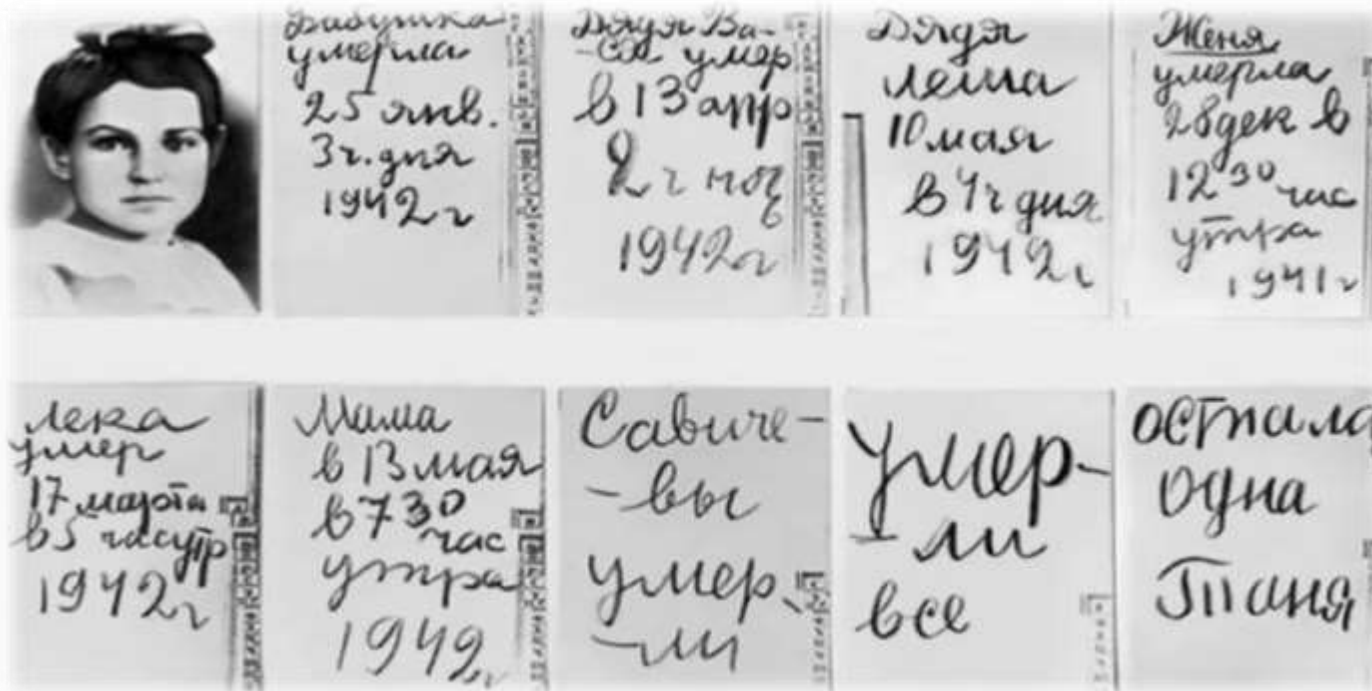 Бабушка
умерла
25 янв.
3ч. дня
1942 г
Дядя Ва-
-ся умер
в 13 апр
2 ч ноч
1942 г
Дядя
Леша
10 мая
в 4 ч дня
1942 г
Женя
умерла
28 дек в
12 30 час
утра
1941 г
Лека
умер
17 марта
в 5 час утр
1942 г
Мама
в 13 мая
в 7 30
час
утра
1942 г
Савиче-
-вы
умер-
-ли
Умер-
-ли
все
Остала
одна
Таня